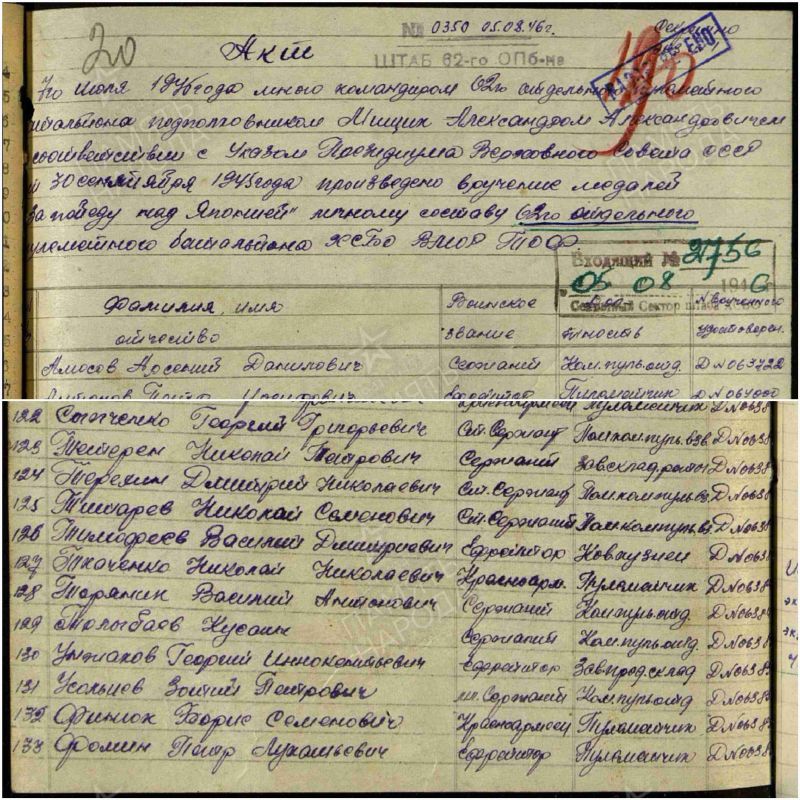 20
№ 0350 05.08.46г.
Акт
ШТАБ 62-го ОПб-на
7го июля 1946 года мною командиром 62го отдельного пулеметного
батальона подполковником Мищик Александром Александровичем
соответствии с Указом Президиума Верховного Совета СССР
30 сентября 1945 года произведено вручение медалей
За победу над Японией" личному составу 62го отдельного
пулеметного батальона ХСБО ВМОР ТОФ.
Входящий № 2756
05 08 1946
Секретный Сектор штаба
Фамилия, имя Воинское Дол № врученного
отчество звание жность удостоверен.
Амосов Арсений Данилович Сержант Ком.пульотд. Д№063722
Ефрейтор Пулеметчик Д№064000
Красноармеец Пулеметчик Д№0638
122 Георгий Григорьевич Ст. Сержант Помкомпульвзв. Д№0638
123 Тетерен Николай Петрович Сержант Зав.склад Д№0638
124 Терехин Дмитрий Николаевич Ст. Сержант Помкомпульвз. Д№0638
125 Николай Семенович Ст. Сержант Помкомпульвз. Д№0638
126 Тимофеев Василий Дмитриевич Ефрейтор Ков.кузнец Д№0638
127 Ткаченко Николай Николаевич Красноарм. Пулеметчик Д№0638
128 Торяник Василий Антонович Сержант Ком.пульотд Д№0638
129 Толыбаев Кусаин Сержант Ком.пульотд. Д№0638
130 Унжаков Георгий Иннокентьевич Ефрейтор Зав.прод.склад Д№0638
131 Усольцев Петрович мл. Сержант Ком.пульотд Д№0638
132 Финюк Борис Семенович Красноармеец Пулеметчик Д№0638
133 Фомин Петр Лукашевич Ефрейтор Пулеметчик Д№0638